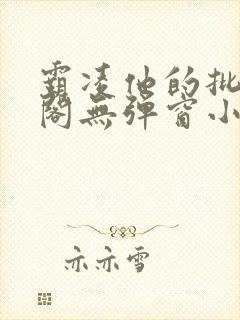 霸凌他的批
阁無弹窗小
亦亦雪